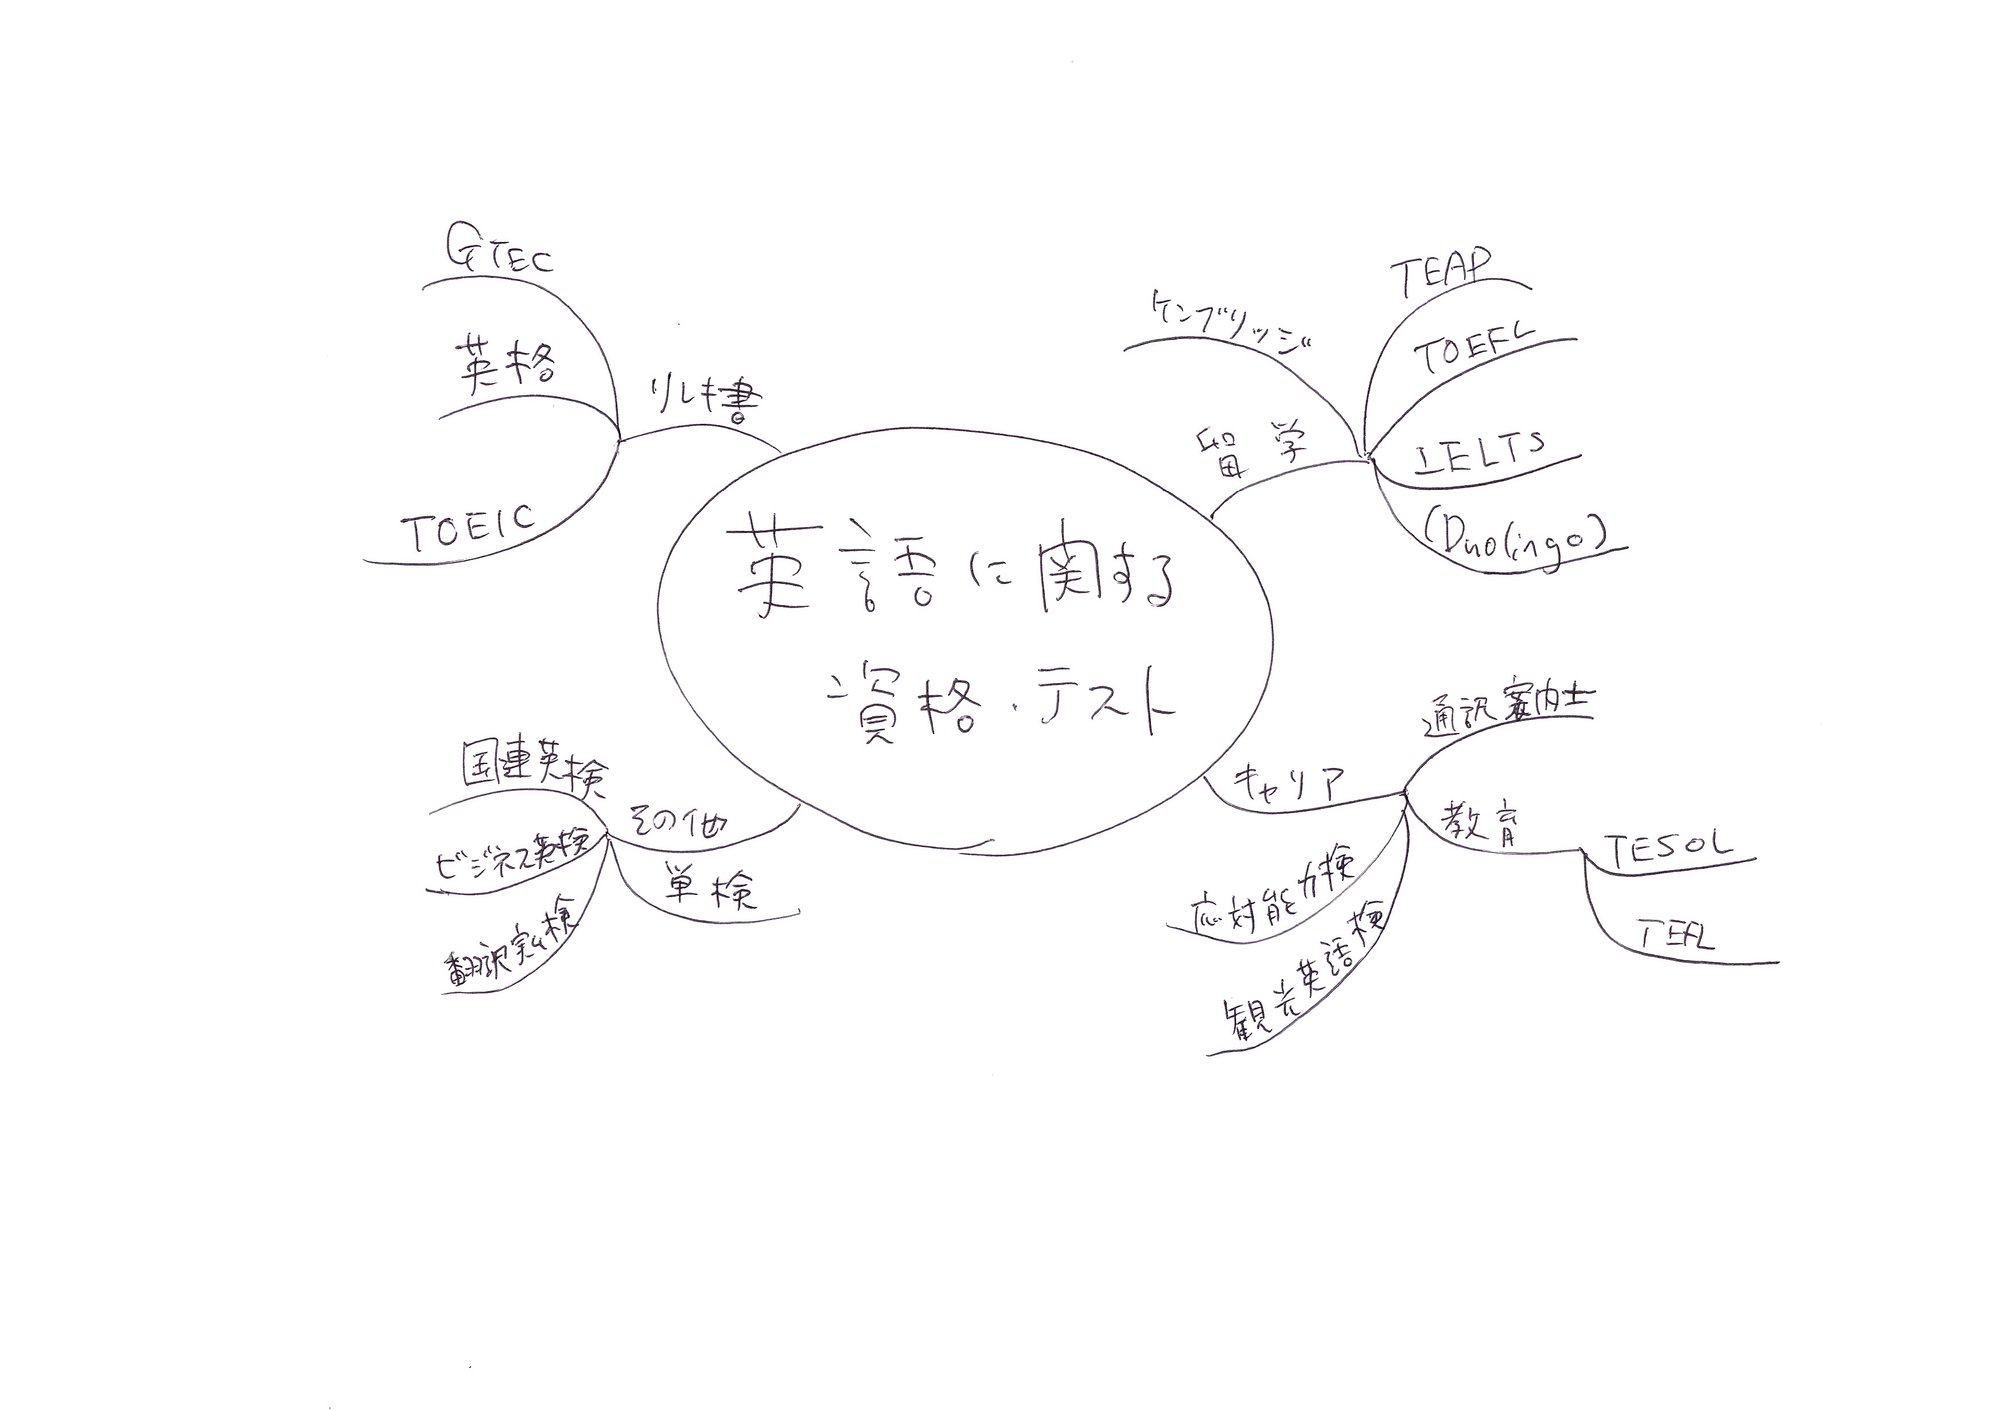 英語に関する
資格・テスト
リレキ書
GTEC
英格
TOEIC
留学
ケンブリッジ
TEAP
TOEFL
IELTS
(Duolingo)
キャリア
通訳案内士
教育
TESOL
TEFL
応対能力検
観光英語検
その他
国連英検
ビジネス英検
翻訳実ム検
単検